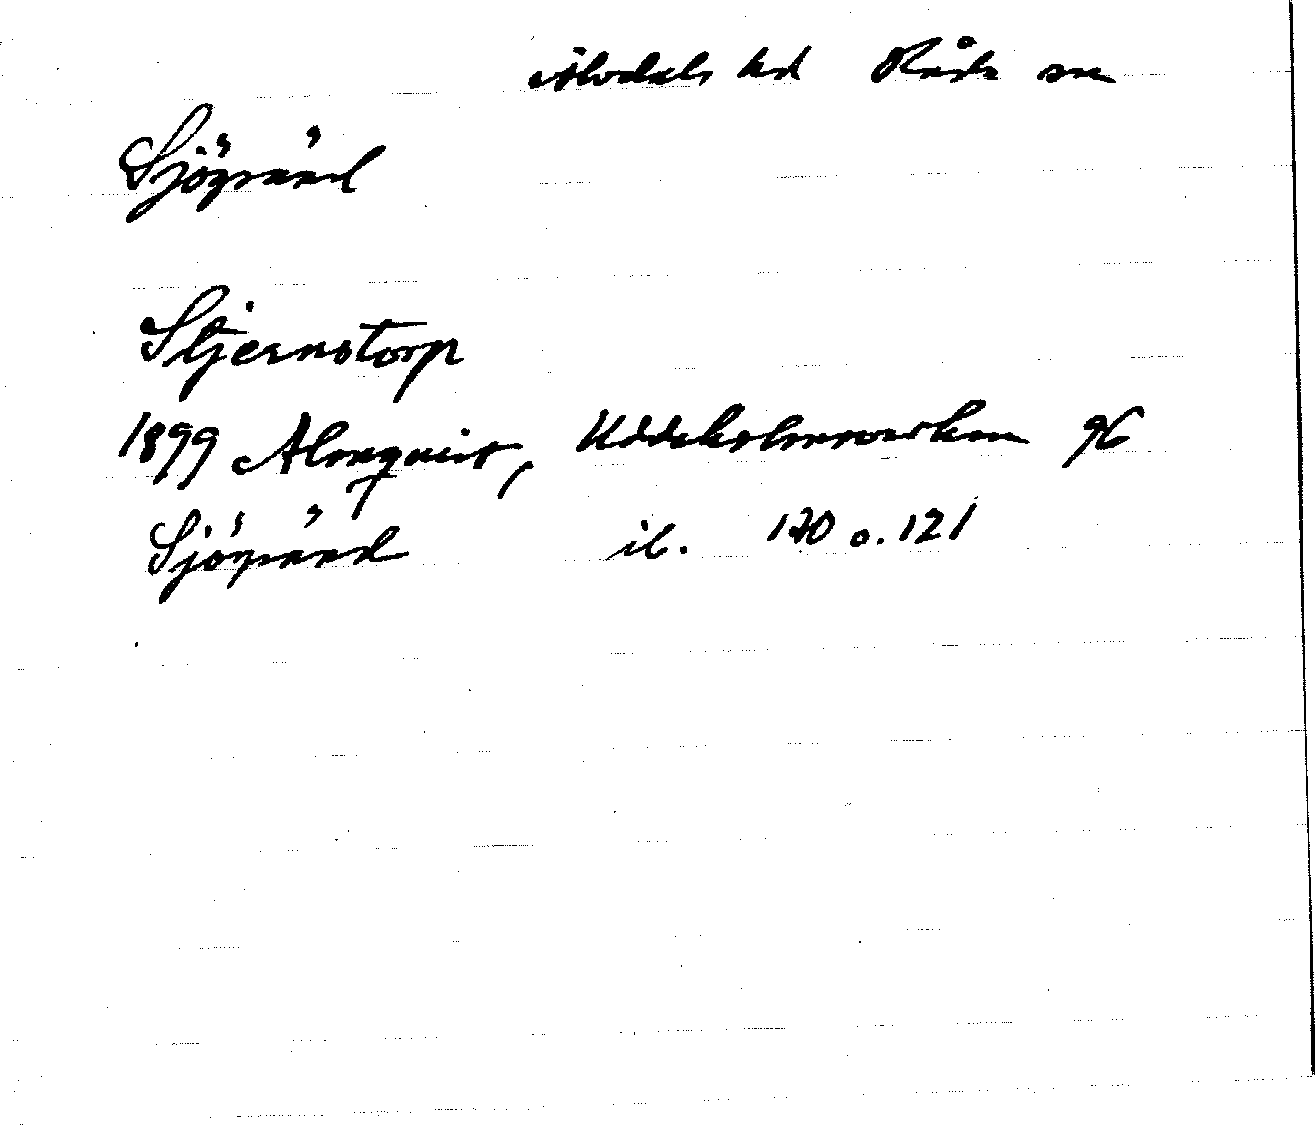 Älvdals hd Råda sn
Sjögränd
Stjernstorp
1899 Almquist, Uddeholmsverken 96
Sjögränd ib. 120 o. 121